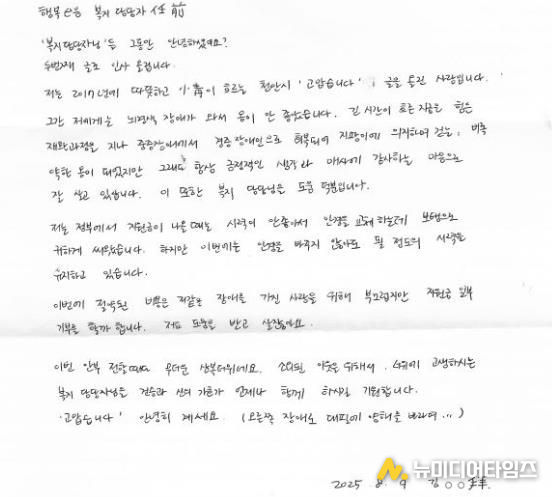 행복e음 복지 담당자 任 前
'복지담당자님'들 그동안 안녕하셨어요?
두번째 글로 인사 올립니다.
저는 2017년에 따뜻하고 이 흐르는 천안시 '고맙습니다' 글을 올린 사람입니다.
그간 저에게는 뇌경색 장애가 와서 몸이 안 좋았습니다. 긴 시간이 흐른 지금은 힘든
재활과정을 지나 중증장애에서 경증장애인으로 회복되어 지팡이에 의지하여 걷는, 비록
약한 몸이 되었지만 그래도 항상 긍정적인 생각과 매사에 감사하는 마음으로
잘 살고 있습니다. 이 또한 복지 담당님들 도움 덕분입니다.
저는 정부에서 지원금이 나올때는 시력이 안좋아서 안경을 교체하는데 보탬으로
귀하게 써왔습니다. 하지만 이번에는 안경을 바꾸지 않아도 될 정도의 시력을
유지하고 있습니다.
이번에 절약된 비용은 저같은 장애를 가진 사람을 위해 부끄럽지만 지원금 일부
기부를 할까 합니다. 저도 도움을 받고 살잖아요.
이번 안부 전할때도 무더운 삼복더위네요. 소외된 이웃을 위해서 더위에 고생하시는
복지 담당자님들 건승과 신의 가호가 언제나 함께 하시길 기원합니다.
'고맙습니다' 안녕히 계세요. (오른쪽 장애로 대필에 양해를 바라며...)
2025 8. 9 김 ○○ 拜.
뉴미디어타임즈